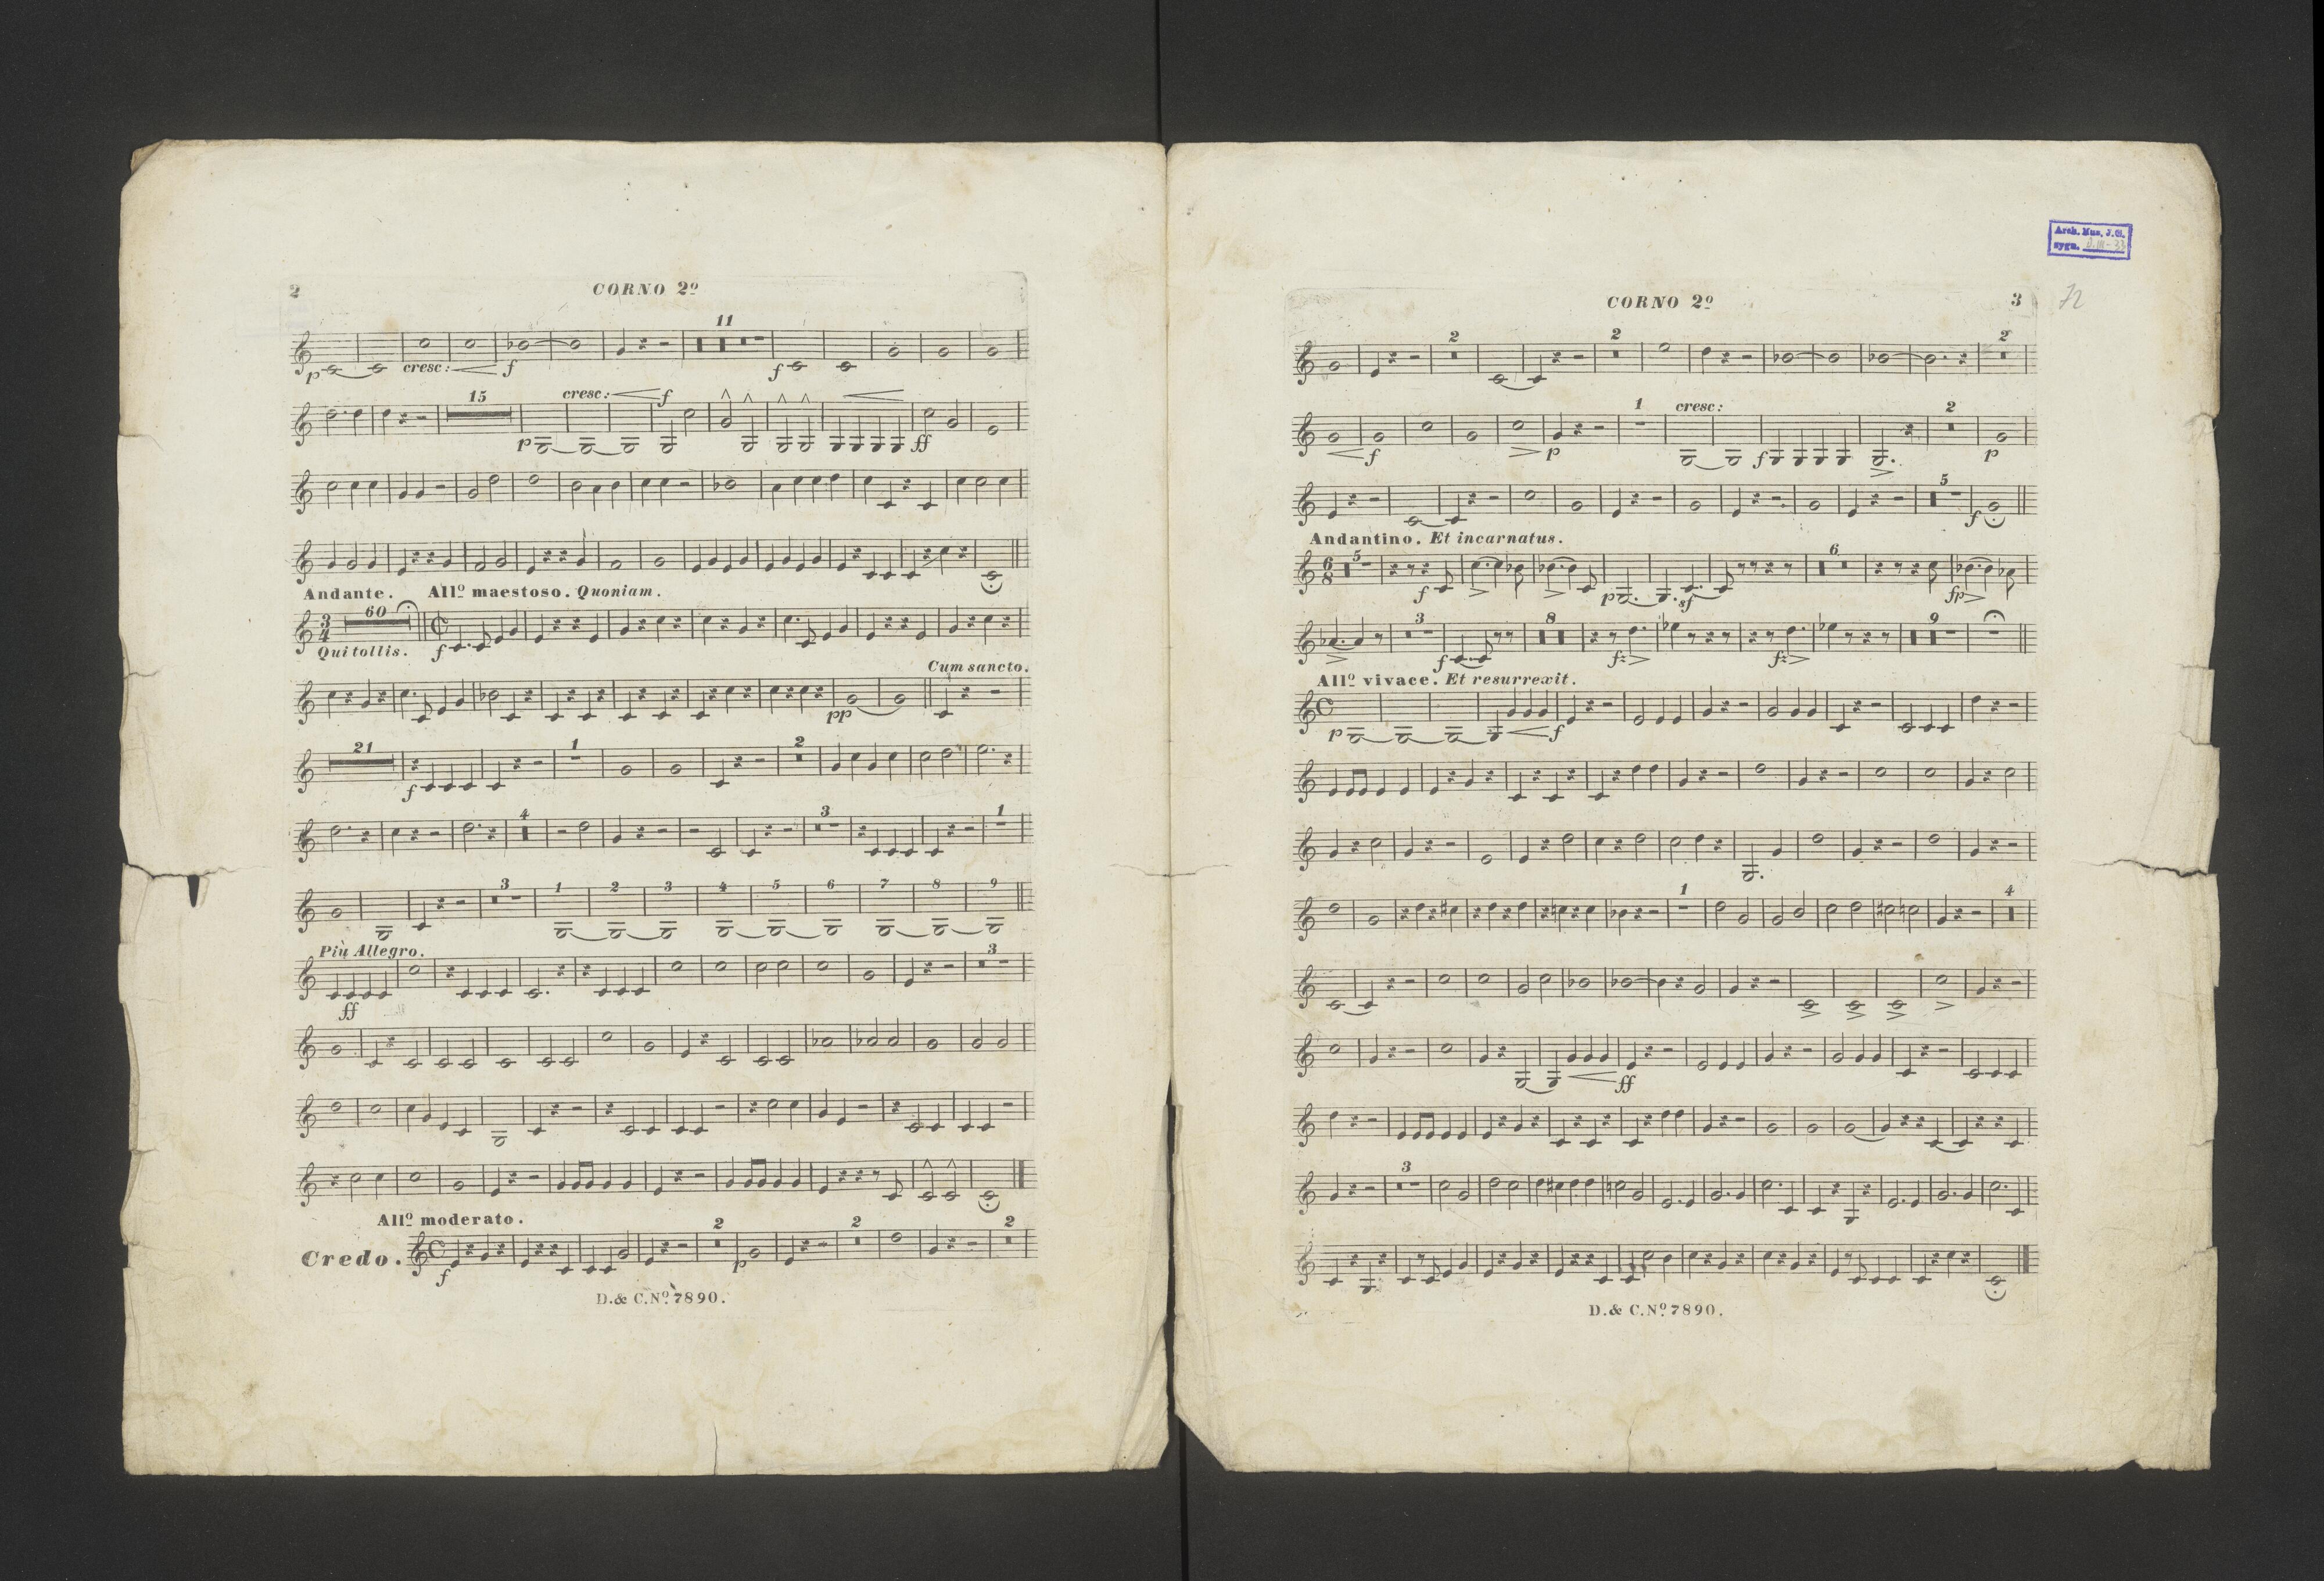 2
CORNO 2º
11
p cresc: f f
15 cresc: f
p ff
Andante. Allº maestoso. Quoniam.
60
3 4
Qui tollis. f
Cum sancto.
pp
21 1 2
f
4 3 1
3 1 2 3 4 5 6 7 8 9
Più Allegro.
3
ff
Allº moderato.
2 2 2
Credo. f p
D.& C.Nº 7890.
Arch. Mus. J.G.
sygn.
CORNO 2º
3
72
2 2 2
1 cresc: 2
f p f p
5
f
Andantino. Et incarnatus.
6 8 5 6
f p sf fp
3 8 9
f fz fz
Allº vivace. Et resurrexit.
p f
1 4
ff
3
D.& C.Nº 7890.